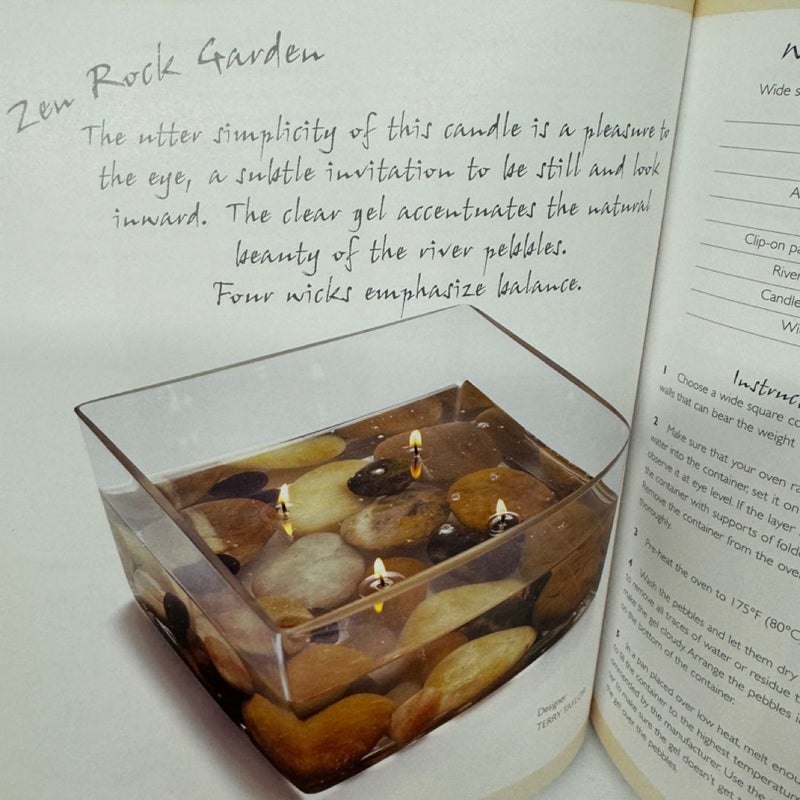 Zen Rock Garden
The utter simplicity of this candle is a pleasure to
the eye, a subtle invitation to be still and look
inward. The clear gel accentuates the natural
beauty of the river pebbles.
Four wicks emphasize balance.
Designer
TERRY TAYLOR
Wide
Clip-on
River
Candle
1 Choose a wide square
walls that can bear the weight
2 Make sure that your oven
water into the container, set it on
observe it at eye level. If the layer
the container with supports of
Remove the container from the
thoroughly.
3 Pre-heat the oven to 175°F (80°C
4 Wash the pebbles and let them dry
to remove all traces of water or residue
make the gel cloudy. Arrange the pebbles
on the bottom of the container.
5 In a pan placed over low heat, melt
to fill the container to the highest
by the manufacturer. Use the
to make sure the gel doesn't get
the gel over the pebbles.